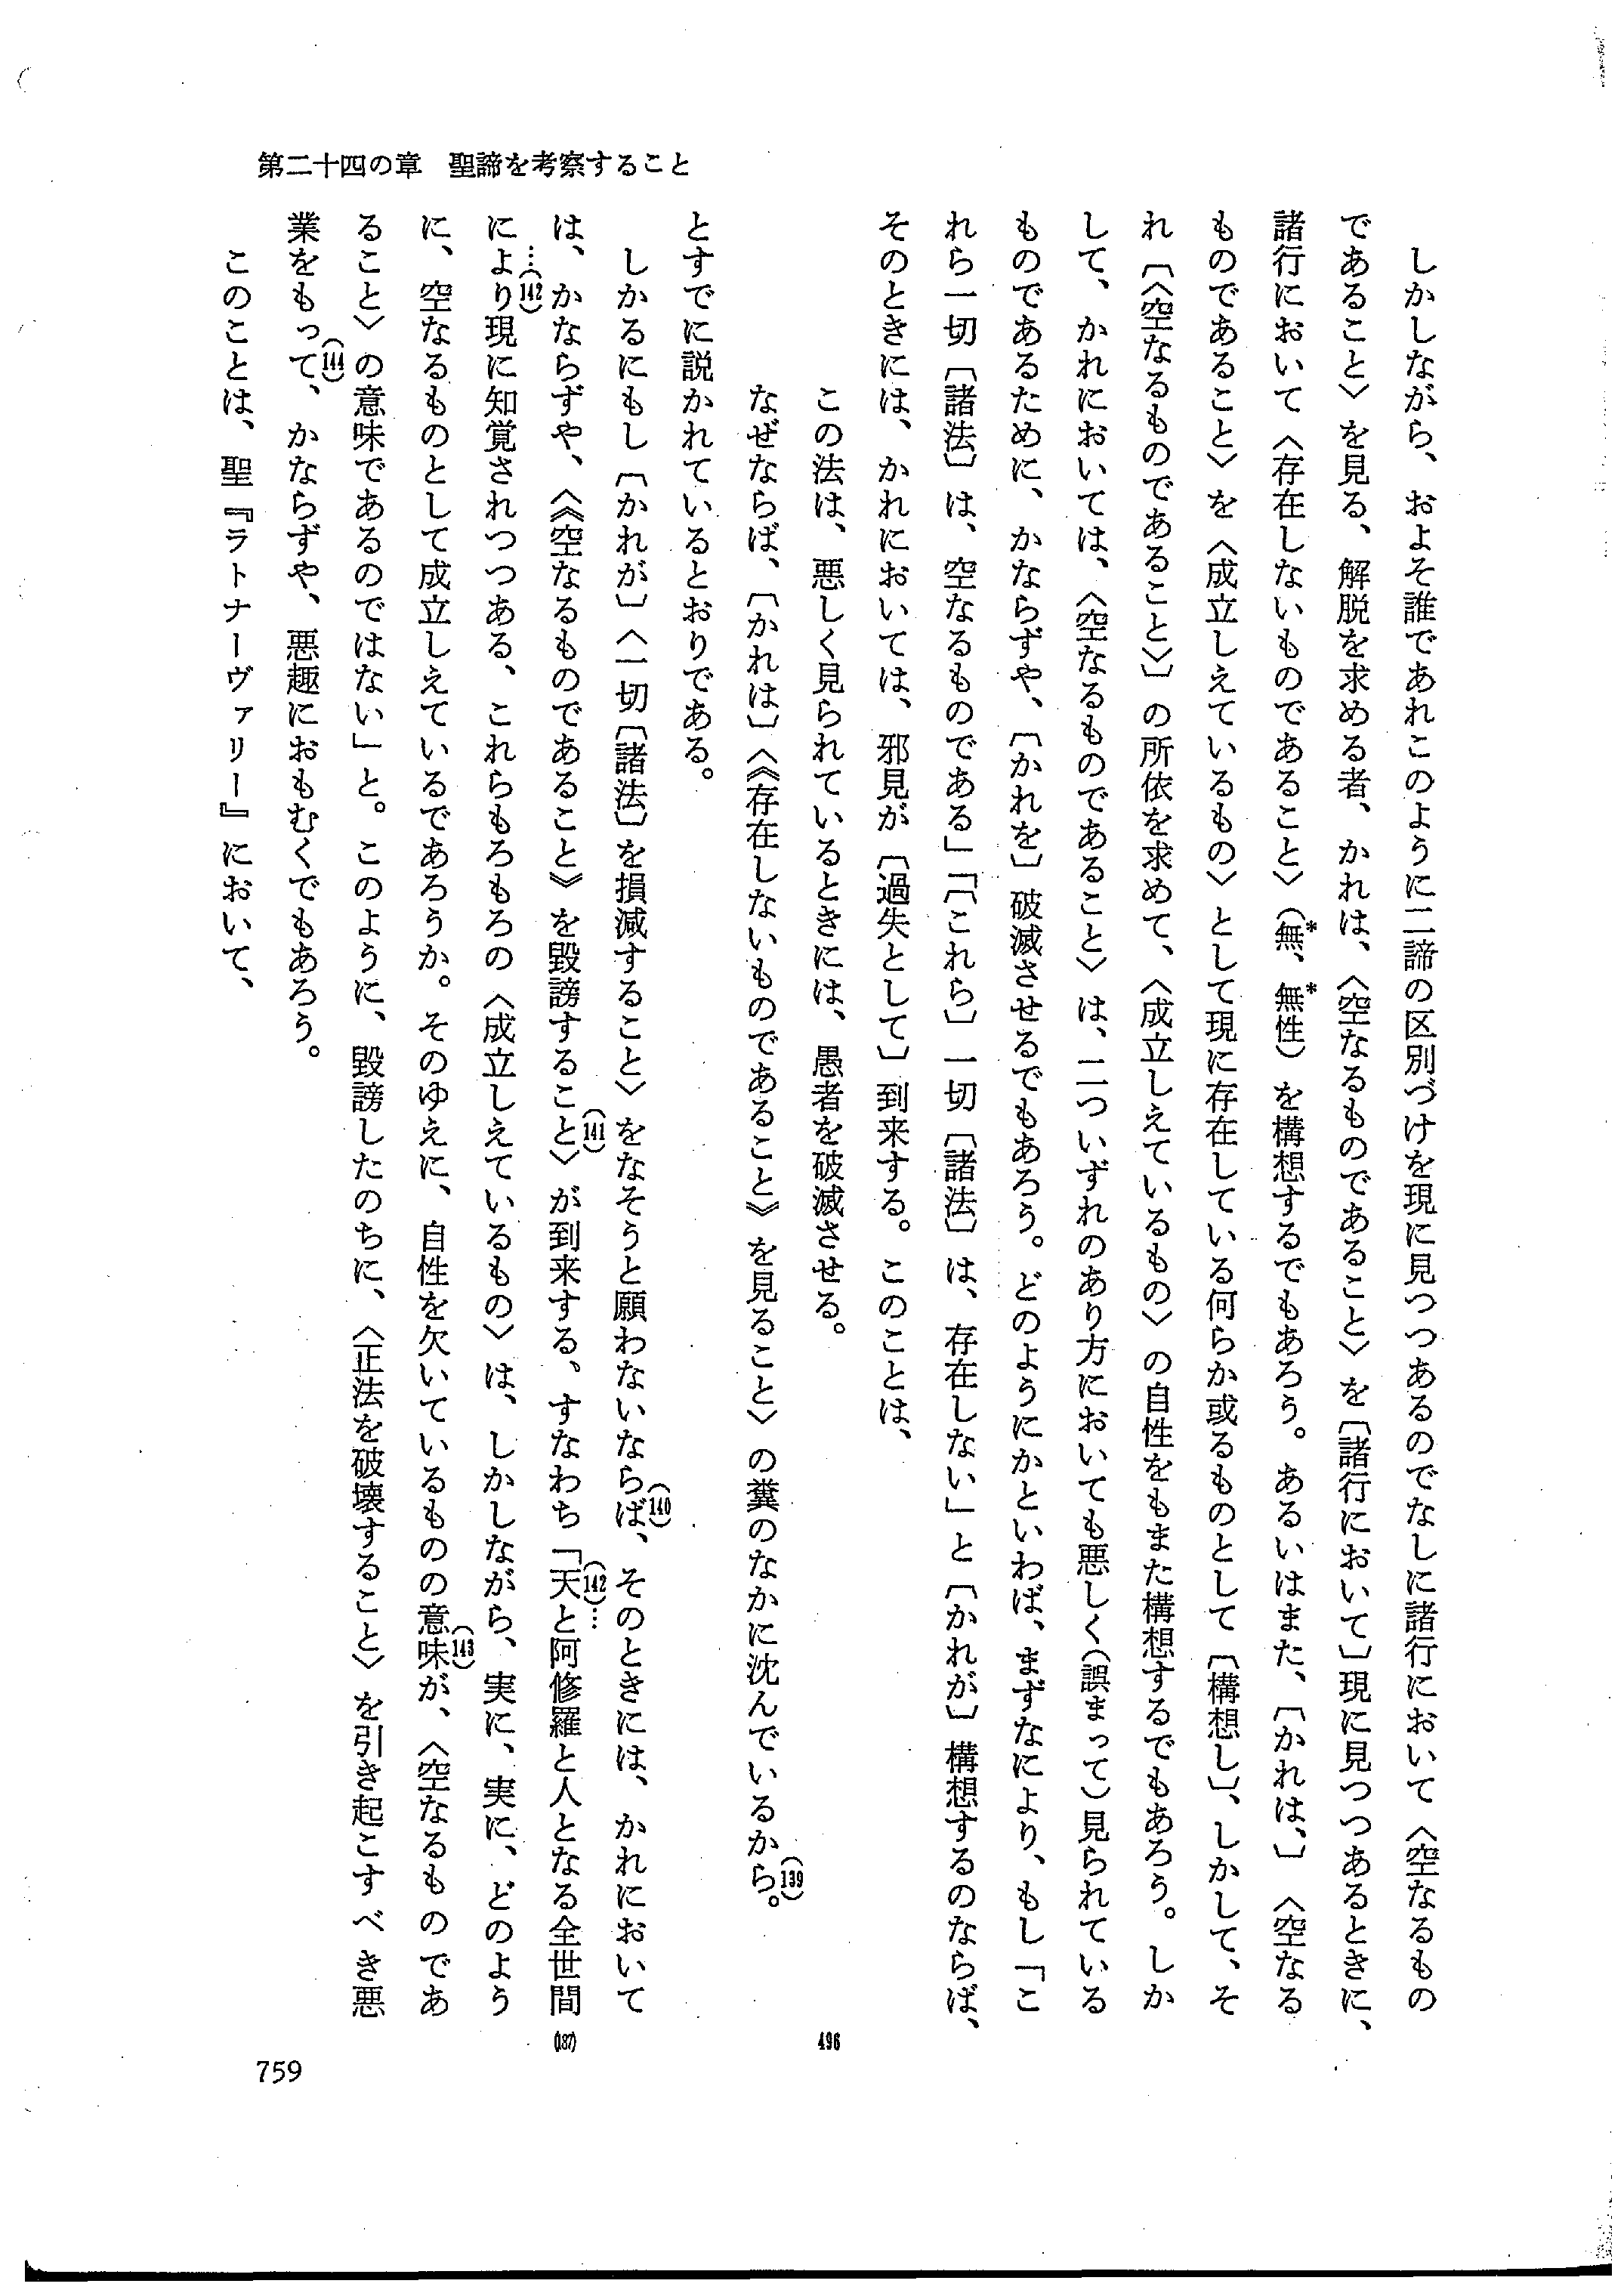 第二十四の章　聖諦を考察すること
　しかしながら、およそ誰であれこのように二諦の区別づけを現に見つつあるのでなしに諸行において〈空なるもの
であること〉を見る、解脱を求める者、かれは、〈空なるものであること〉を〔諸行において〕現に見つつあるときに、
諸行において〈存在しないものであること〉（無*、無性*）を構想するでもあろう。あるいはまた、〔かれは、〕〈空なる
ものであること〉を〈成立しえているもの〉として現に存在している何らか或るものとして〔構想し〕、しかして、そ
れ〔〈空なるものであること〉〕の所依を求めて、〈成立しえているもの〉の自性をもまた構想するでもあろう。しか
して、かれにおいては、〈空なるものであること〉は、二ついずれのあり方においても悪しく（誤まって）見られている
ものであるために、かならずや、〔かれを〕破滅させるでもあろう。どのようにかといわば、まずなにより、もし「こ
れら一切〔諸法〕は、空なるものである」「〔これら〕一切〔諸法〕は、存在しない」と〔かれが〕構想するのならば、
そのときには、かれにおいては、邪見が〔過失として〕到来する。このことは、
この法は、悪しく見られているときには、愚者を破滅させる。
なぜならば、〔かれは〕〈《存在しないものであること》を見ること〉の糞のなかに沈んでいるから(139)。
とすでに説かれているとおりである。
　しかるにもし〔かれが〕〈一切〔諸法〕を損減すること〉をなそうと願わないならば(140)、そのときには、かれにおいて
は、かならずや、〈《空なるものであること》を毀謗すること(141)〉が到来する、すなわち「天(142)…と阿修羅と人となる全世間
により…(142)現に知覚されつつある、これらもろもろの〈成立しえているもの〉は、しかしながら、実に、実に、どのよう
に、空なるものとして成立しえているであろうか。そのゆえに、自性を欠いているものの意味(143)が、〈空なるものであ
ること〉の意味であるのではない」と。このように、毀謗したのちに、〈正法を破壊すること〉を引き起こすべき悪
業をもって(144)、かならずや、悪趣におもむくでもあろう。
　このことは、聖『ラトナーヴァリー』において、
496
(187)
759